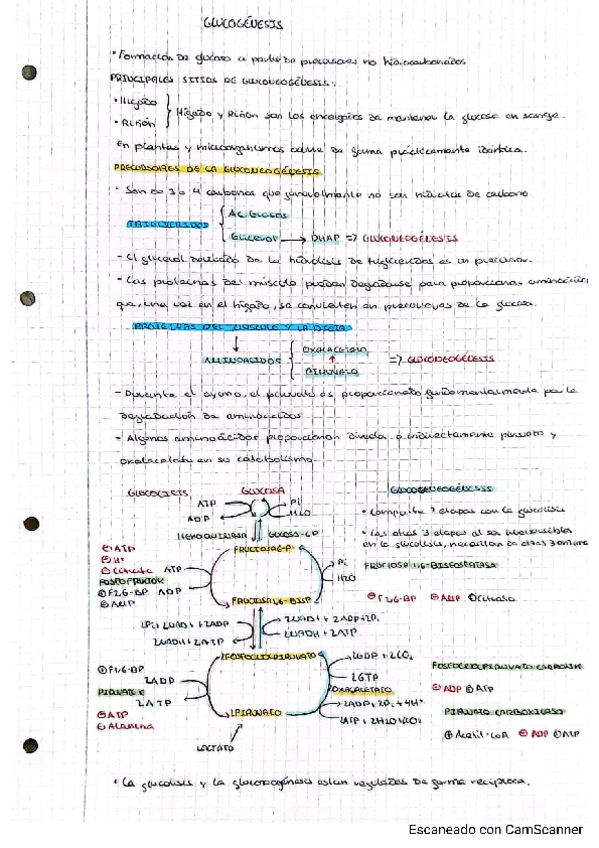 GLUCOGÉNESIS
• Formación de glucosa a partir de precursores no hidrocarbonados
PRINCIPALES SITIOS DE GLUCONEOGÉNESIS:
• Hígado
• Riñón
Hígado y Riñón son los encargados de mantener la glucosa en sangre.
En plantas y microorganismos ocurre de forma prácticamente idéntica.
PRECURSORES DE LA GLUCONEOGÉNESIS
• Son de 3 o 4 carbonos que generalmente no son hidratos de carbono
TRIGLICÉRIDO
AC GRASOS
Glicerol → DHAP => GLUCONEOGÉNESIS
- El glicerol derivado de la hidrólisis de triglicéridos es un precursor.
- Las proteínas del músculo pueden degradarse para proporcionar aminoácidos
que, una vez en el hígado, se convierten en precursoras de la glucosa.
PROTEÍNAS DEL MÚSCULO Y LA DIETA
AMINOÁCIDOS
OXALACETATO
PIRUVATO
=> GLUCONEOGÉNESIS
- Durante el ayuno, el piruvato es proporcionado fundamentalmente por la
degradación de aminoácidos
- Algunos aminoácidos proporcionan directa o indirectamente piruvato y
oxalacetato en su catabolismo.
GLUCOLISIS
GLUCOSA
GLUCONEOGÉNESIS
ATP
ADP
Pi
H2O
• Comparte 7 etapas con la glucolisis
HEXOQUINASA
GLUCOSA-6P
• Las otras 3 etapas al ser irreversibles
en la glucolisis, necesitan de otras 3
FRUCTOSA 6-P
⊖ ATP
⊖ H+
⊖ Citrato
ATP
Pi
H2O
FRUCTOSA 1,6-BISFOSFATASA
⊕ F2,6-BP
ADP
⊕ AMP
FRUCTOSA 1,6-BISP
⊖ F2,6-BP ⊖ AMP ⊕ Citrato
2Pi + 2NAD + 2ADP
2NADH + 2ATP
2NAD + 2ADP + 2Pi
2NADH + 2ATP
2 FOSFOENOLPIRUVATO
⊕ F1,6-BP
2ADP
2GDP + 2CO2
2GTP
FOSFOENOLPIRUVATO
PIRUVATO
2ATP
OXALACETATO
⊖ ADP ⊕ ATP
⊖ ATP
⊖ Alanina
2 PIRUVATO
2ADP + 2Pi + 4H+
2ATP + 2H2O + 2CO2
PIRUVATO CARBOXILASA
⊕ Acetil-CoA ⊖ ADP ⊕ ATP
LACTATO
• La glucolisis y la gluconeogénesis están reguladas de forma recíproca.
Escaneado con CamScanner